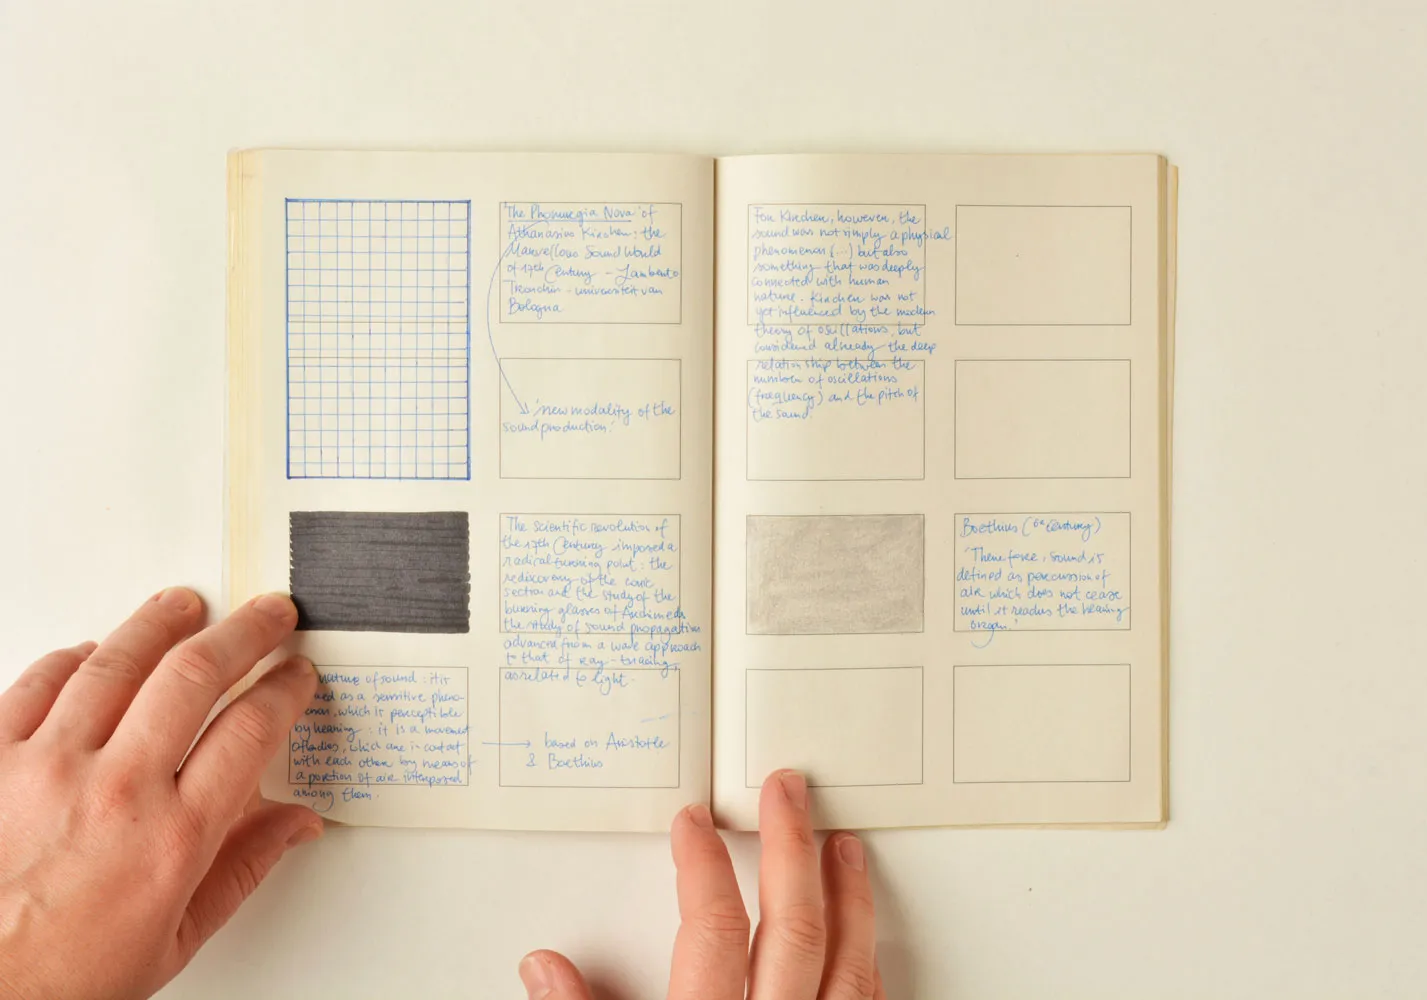 'The Phonurgia Nova' of
Athanasius Kircher: the
Marvellous Sound World
of 17th Century - Lamberto
Tronchin - universiteit van
Bologna
'new modality of the
sound production.'
The scientific revolution of
the 17th Century imposed a
radical turning point: the
rediscovery of the conic
section and the study of the
burning glasses of Archimede
the study of sound propagation
advanced from a wave approach
to that of ray-tracing,
as related to light.
nature of sound: it is
as a sensitive pheno-
, which is perceptible
by hearing: it is a movement
of bodies, which are in contact
with each other by means of
a portion of air interposed
among them.
based on Aristotle
& Boethius
For Kircher, however, the
sound was not simply a physical
phenomenon (...) but also
something that was deeply
connected with human
nature. Kircher was not
yet influenced by the modern
theory of oscillations, but
considered already the deep
relationship between the
number of oscillations
(frequency) and the pitch of
the sound.
Boethius (6e century)
'Therefore, sound is
defined as percussion of
air which does not cease
until it reaches the hearing
organ.'